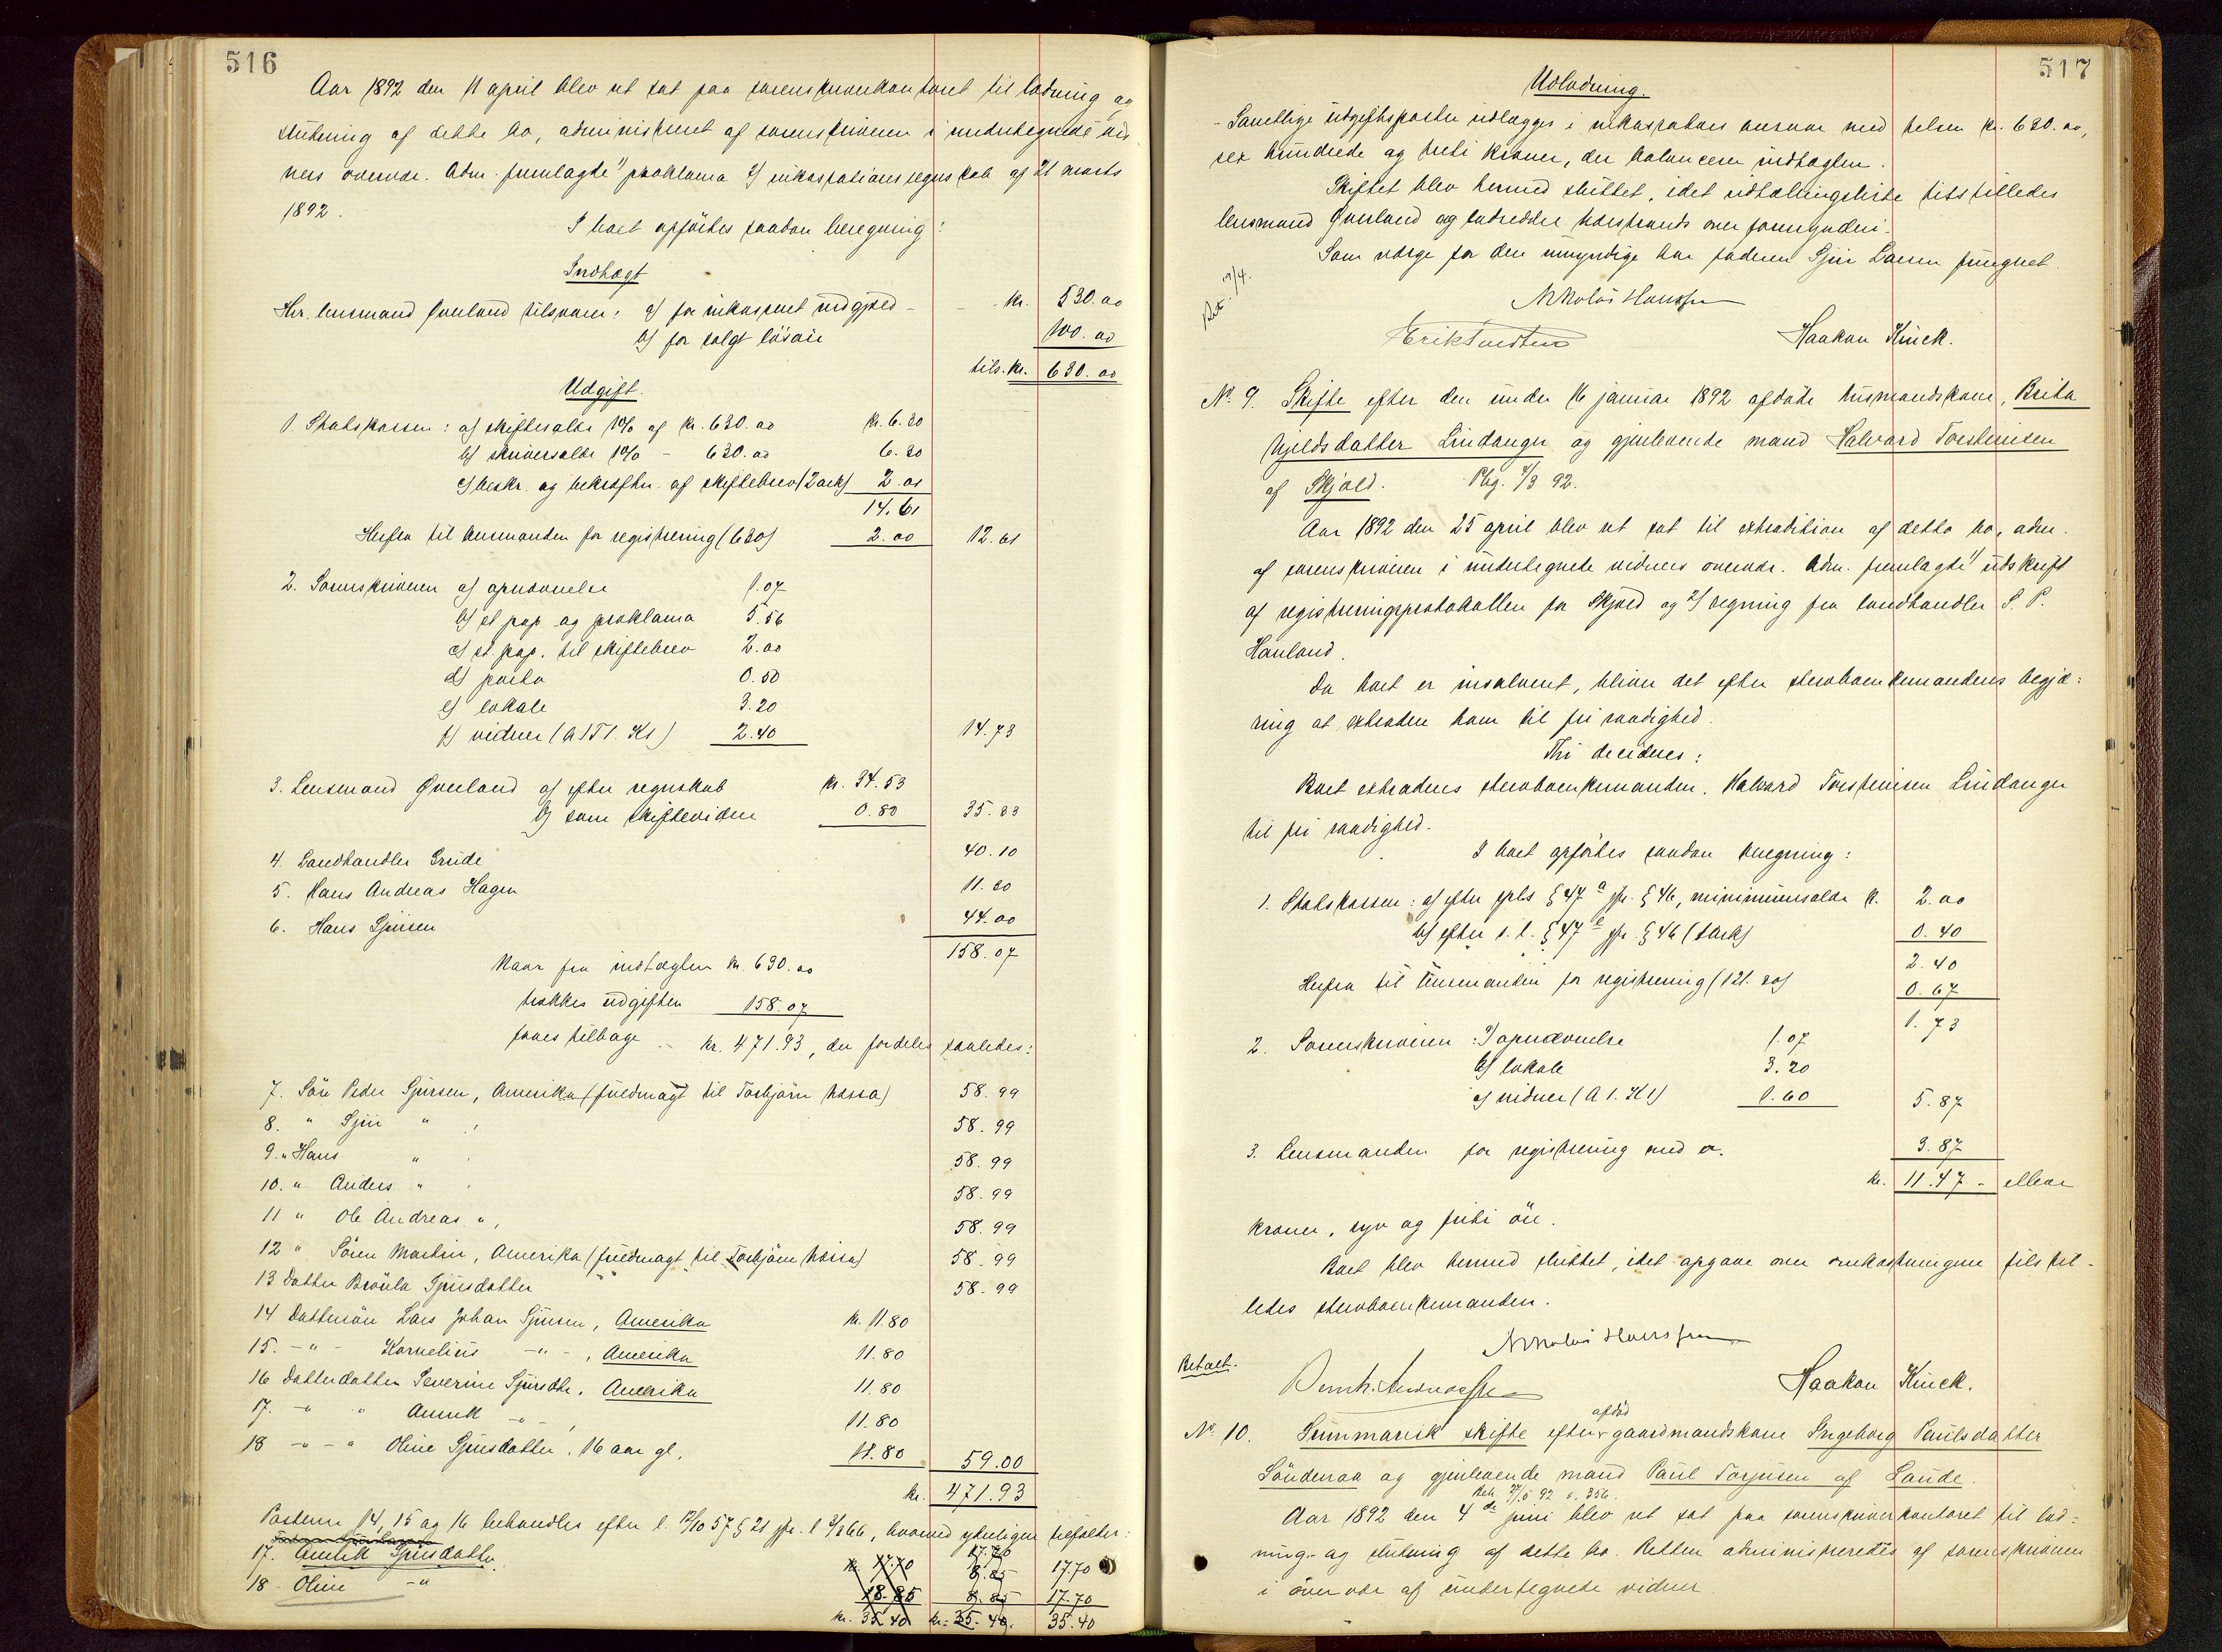 516
Aar 1892 den 11 april blev ret sat paa sorenskriverkontoret til lodning og
slutning af dette bo, administreret af sorenskriveren i undertegnede vid
ners overvær. Adm. fremlagde 1) proklama 2) inkassationsregnskab af 21 marts
1892.
I boet opförtes saadan beregning:
Indtægt
Hr. lensmand Qverland tilsvarer: a) for inkasseret indgjæld - kr. 530.00
b) for solgt lösöre 100.00
tils. kr. 630.00
Udgift.
1. Statskassen: a) skiftesalär 1% af kr. 630.00 kr. 6.30
b) skriversalär 1% - 630.00 6.30
c) beskr. og bekræftn. af skiftebrev (2 ark) 2.01
14.61
Herfra til lensmanden for registrering (630) 2.00 12.61
2. Sorenskriveren a) opnævnelse 1.07
b) st. pap og proklama 5.56
c) st. pap. til skiftebrev 2.00
d) porto 0.50
e) lokale 3.20
f) vidner (A 151. K1) 2.40 14.73
3. Lensmand Qverland a) efter regnskab kr. 34.53
b) som skiftevidne 0.80 35.33
4. Landhandler Grude 40.10
5. Hans Andreas Hagen 11.30
6. Hans Sjursen 44.00
158.07
Naar fra indtægten kr. 630.00
trækkes udgiften 158.07
faaes tilbage - kr. 471.93, der fordeles saaledes:
7. Sön Peder Sjursen, Amerika (fuldmagt til Torbjörn Væssa) 58.99
8. " Sjur " , 58.99
9. " Hans " , 58.99
10. " Anders " , 58.99
11 " Ole Andreas " , 58.99
12 " Sören Martin, Amerika (fuldmagt til Torbjörn Væssa) 58.99
13 Datter Brönla Sjursdatter 58.99
14 Dattersön Lars Johan Sjursen, Amerika kr. 11.80
15. -"- Kornelius -"- , Amerika 11.80
16 Datterdatter Severine Sjursdtr., Amerika 11.80
17. -" " Amelt -"- , 11.80
18 -"-" Oline Sjursdatter, 16 aar gl. 11.80 59.00
kr. 471.93
Posterne 14, 15 og 16 behandles efter l. 12/10 57 § 21 jfr. l 3/3 66, hvorved yderligere tilfalder:
17. Amelt Sjursdatter kr. 17.70 17.70 8.85 17.70
18 - Oline -" 18.85 8.85 17.70
kr. 35.40 kr. 35.40. 35.40
517
Udlodning.
Samtlige udgiftsposter udlægges i inkassators ansvar med tilsm kr. 630.00,
sex hundrede og treti kroner, der balancerer indtægten.
Skiftet blev hermed sluttet, idet udtællingsliste tilstilledes
lensmand Qverland og lodseddel udestaaende over formynderi.
Som værge for den umyndige har faderen Sjur Larsen fungeret.
Nikolai Hanssen
Erik Tuedten
Haakon Kinck.
No. 9. Skifte efter den under 16 januar 1892 afdöde husmandskone, Brita
Kjeldsdatter Lindanger og gjenlevende mand Halvard Torsteinsen
af Skjold. Phg. 4/3 92.
Aar 1892 den 25 april blev ret sat til extradition af dette bo, adm.
af sorenskriveren i undertegnede vidners overvær. Adm. fremlagde 1) udskrift
af registreringsprotokollen for Skjold og 2) regning fra landhandler S. P.
Hauland.
Da boet er insolvent, bliver det efter sterboenkemandens begjæ:
ring at extradere ham til fri raadighed.
Thi decideres:
Boet extraderes sterboenkemanden, Halvard Torsteinsen Lindanger
til fri raadighed.
I boet opförtes saadan beregning:
1. Statskassen: a) efter spls § 47 a jfr. § 46, minimumsalär kr. 2.00
b) efter s. l. § 47 e jfr. § 46 (1 ark) 0.40
2.40
Herfra til lensmanden for registrering (121. 20) 0.67
1.73
2. Sorenskriveren: a) opnævnelse 1.07
b) lokale 3.20
c) vidner (A 1. K1) 1.60 5.87
3. Lensmanden for registrering med v. 3.87
kr. 11.47 - elleve
kroner, syv og firti öre.
Boet blev hermed sluttet, idet opgave over omkostningerne tilstil-
ledes sterboenkemanden.
Nikolai Hanssen
Betalt.
Haakon Kinck.
No. 10. Summarisk skifte efter afdöd gaardmandskone Ingeborg Paulsdatter
Sönderaa og gjenlevende mand Paul Torjusen af Saude.
Beh. 27/5 92 s. 356.
Aar 1892 den 4de juni blev ret sat paa sorenskriverkontoret til lod:
ning- og slutning af dette bo. Retten administreredes af sorenskriveren
i overvær af undertegnede vidner.